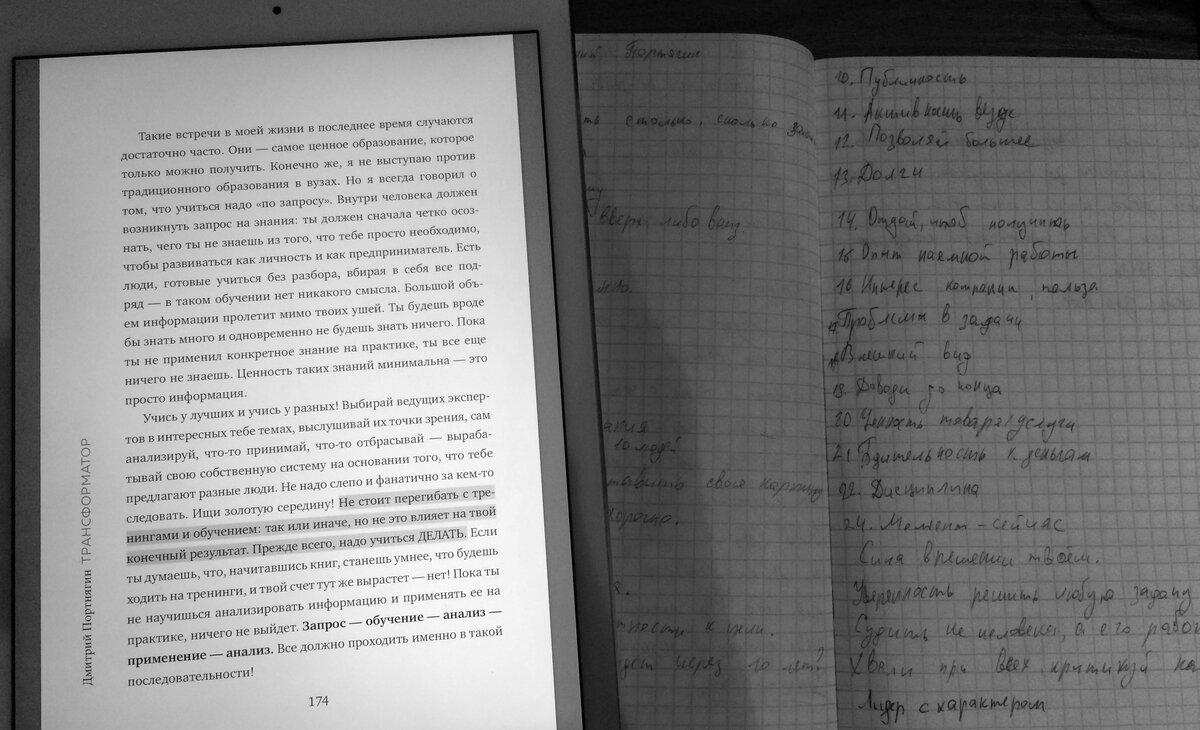 Такие встречи в моей жизни в последнее время случаются
достаточно часто. Они — самое ценное образование, которое
только можно получить. Конечно же, я не выступаю против
традиционного образования в вузах. Но я всегда говорил о
том, что учиться надо «по запросу». Внутри человека должен
возникнуть запрос на знания: ты должен сначала четко осоз-
нать, чего ты не знаешь из того, что тебе просто необходимо,
чтобы развиваться как личность и как предприниматель. Есть
люди, готовые учиться без разбора, вбирая в себя все под-
ряд — в таком обучении нет никакого смысла. Большой объ-
ем информации пролетит мимо твоих ушей. Ты будешь вроде
бы знать много и одновременно не будешь знать ничего. Пока
ты не применил конкретное знание на практике, ты все еще
ничего не знаешь. Ценность таких знаний минимальна — это
просто информация.
Учись у лучших и учись у разных! Выбирай ведущих экспер-
тов в интересных тебе темах, выслушивай их точки зрения, сам
анализируй, что-то принимай, что-то отбрасывай — выраба-
тывай свою собственную систему на основании того, что тебе
предлагают разные люди. Не надо слепо и фанатично за кем-то
следовать. Ищи золотую середину! Не стоит перегибать с тре-
нингами и обучением: так или иначе, но не это влияет на твой
конечный результат. Прежде всего, надо учиться ДЕЛАТЬ. Если
ты думаешь, что, начитавшись книг, станешь умнее, что будешь
ходить на тренинги, и твой счет тут же вырастет — нет! Пока ты
не научишься анализировать информацию и применять ее на
практике, ничего не выйдет. Запрос — обучение — анализ —
применение — анализ. Все должно проходить именно в такой
последовательности!
174
Дмитрий Портнягин ТРАНСФОРМАТОР
столько, сколько
вверх, либо вниз
10 людей
свою картину
хорошо.
через 10 лет?
10. Публичность
11. Активность везде
12. Позволяй большее
13. Долги
14. Отдай, чтоб получить
15. Опыт наемной работы
16. Интерес компании, польза
17. Проблемы в задачи
18. Внешний вид
19. Доводи до конца
20. Ценность товара/услуги
21. Бдительность к деньгам
22. Дисциплина
24. Момент - сейчас
Сила в решении твоём.
Уверенность решить любую задачу
Судить не человека, а его
Хвали при всех, критикуй на
Лидер с характером